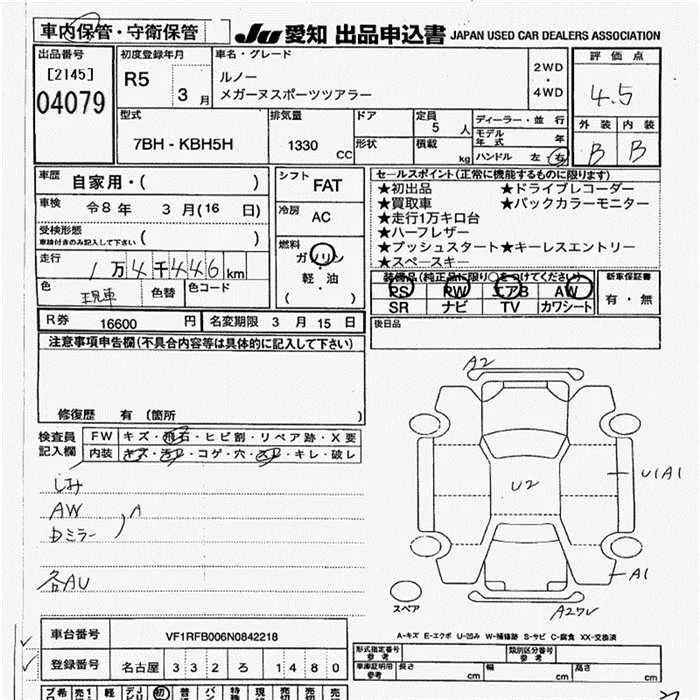 車内保管・守衛保管
JU 愛知 出品申込書 JAPAN USED CAR DEALERS ASSOCIATION
出品番号
[2145]
04079
初度登録年月
R5 3 月
車名・グレード
ルノー
メガーヌスポーツツアラー
2WD
・
4WD
評価点
4.5
外装 内装
B B
型式
7BH - KBH5H
排気量
1330 CC
ドア
形状
定員
5 人
積載
kg
ディーラー・並行
モデル年式 年
ハンドル 左 右
車歴
自家用・( )
車検
令8年 3 月(16 日)
受検形態
車検付きのみ記入して下さい ( )
走行
1万4千446km
色
現車
色替
色コード
シフト
FAT
冷房
AC
燃料
ガソリン
軽・油
( ・ )
セールスポイント(正常に機能するものに限ります)
★初出品 ★ドライブレコーダー
★買取車 ★バックカラーモニター
★走行1万キロ台
★ハーフレザー
★プッシュスタート★キーレスエントリー
★スペースキー
装備品(純正品に限り○をつけてください)
PS PW エアB AW
SR ナビ TV カワシート
新車保証書
有・無
後日品
R券 16600 円 名変期限 3 月 15 日
注意事項申告欄(不具合内容等は具体的に記入して下さい)
修復歴 有 (箇所 )
検査員
記入欄
FW キズ・飛石・ヒビ割・リペア跡・X要
内装 キズ・汚レ・コゲ・穴・スレ・キレ・破レ
しみ
AW
Dミラー
A
各AU
A2
U2
U1A1
A1
スペア
A-キズ E-エクボ U-凹み W-補修跡 S-サビ C-腐食 XX-交換済
車台番号 VF1RFB006N0842218
登録番号 名古屋 332 ろ 1480
形式指定番号
参考
類別区分番号
参考
車庫証明用
参考
長さ cm 幅 cm 高さ cm